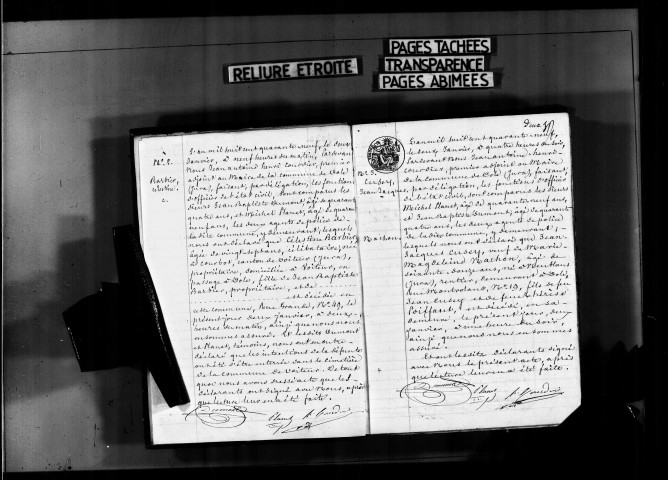 PAGES TACHEES
RELIURE ETROITE
TRANSPARENCE
PAGES ABIMEES
N°. 2.
Barbier,
L'an mil huit cent quarante-neuf, le deux
Janvier, à neuf heures du matin, pardevant
Nous Jean antoine henri Courdier, premier
adjoint au Maire de la commune de Dole
(Jura), faisant, par délégation, les fonctions
d'officier de l'état civil, sont comparus les
Sieurs Jean Baptiste Dumont, âgé de quarante
quatre ans, et Michel Planet, âgé de quarante
neuf ans, les deux agents de police de
la dite commune, y demeurant, lesquels
nous ont déclaré que Célestine Barbier
âgée de vingt sept ans, célibataire, née
canton de Voiteur (Jura),
propriétaire, domiciliée à Voiteur, en
passage à Dole, fille de Jean Baptiste
Barbier, propriétaire, et de
est décédée en
cette commune, Rue Grande, N°. 49, le
présent jour deux Janvier, à deux
heures du matin, ainsi que nous nous
en sommes assuré. Et les dits Dumont
et Planet, témoins, nous ont en outre
déclaré que les intentions de la défunte
ont été d'être enterrée dans le cimetière
de la commune de Voiteur. De tout
quoi nous avons dressé acte que les
déclarants ont signé avec Nous, après
que lecture leur en a été faite.
Dumont Planet
N°. 3.
Cusey,
Jean Jacques,
Machon.
L'an mil huit cent quarante-neuf,
le deux Janvier, à quatre heures du soir,
pardevant Nous Jean antoine henri
Courdier, premier adjoint au Maire
de la commune de Dole (Jura), faisant,
par délégation, les fonctions d'officier
de l'état civil, sont comparus les Sieurs
Michel Planet, âgé de quarante neuf ans,
et Jean Baptiste Dumont, âgé de quarante
quatre ans, les deux agents de police
de la dite commune, y demeurant,
lesquels nous ont déclaré que Jean
Jacques Cusey, veuf de Marie
Magdeleine Machon, âgé de
soixante douze ans, né à
(Jura), rentier, demeurant à Dole,
Rue Montroland, N°. 19, fils de feu
Jean Cusey et de feue Thérèse
Poiffaut, est décédé, en sa
demeure, le présent jour, deux
Janvier, à une heure du soir,
ainsi que nous nous en sommes
assuré.
Et ont les dits déclarants signé
avec Nous le présent acte, après
que lecture leur en a été faite.
Dumont Planet